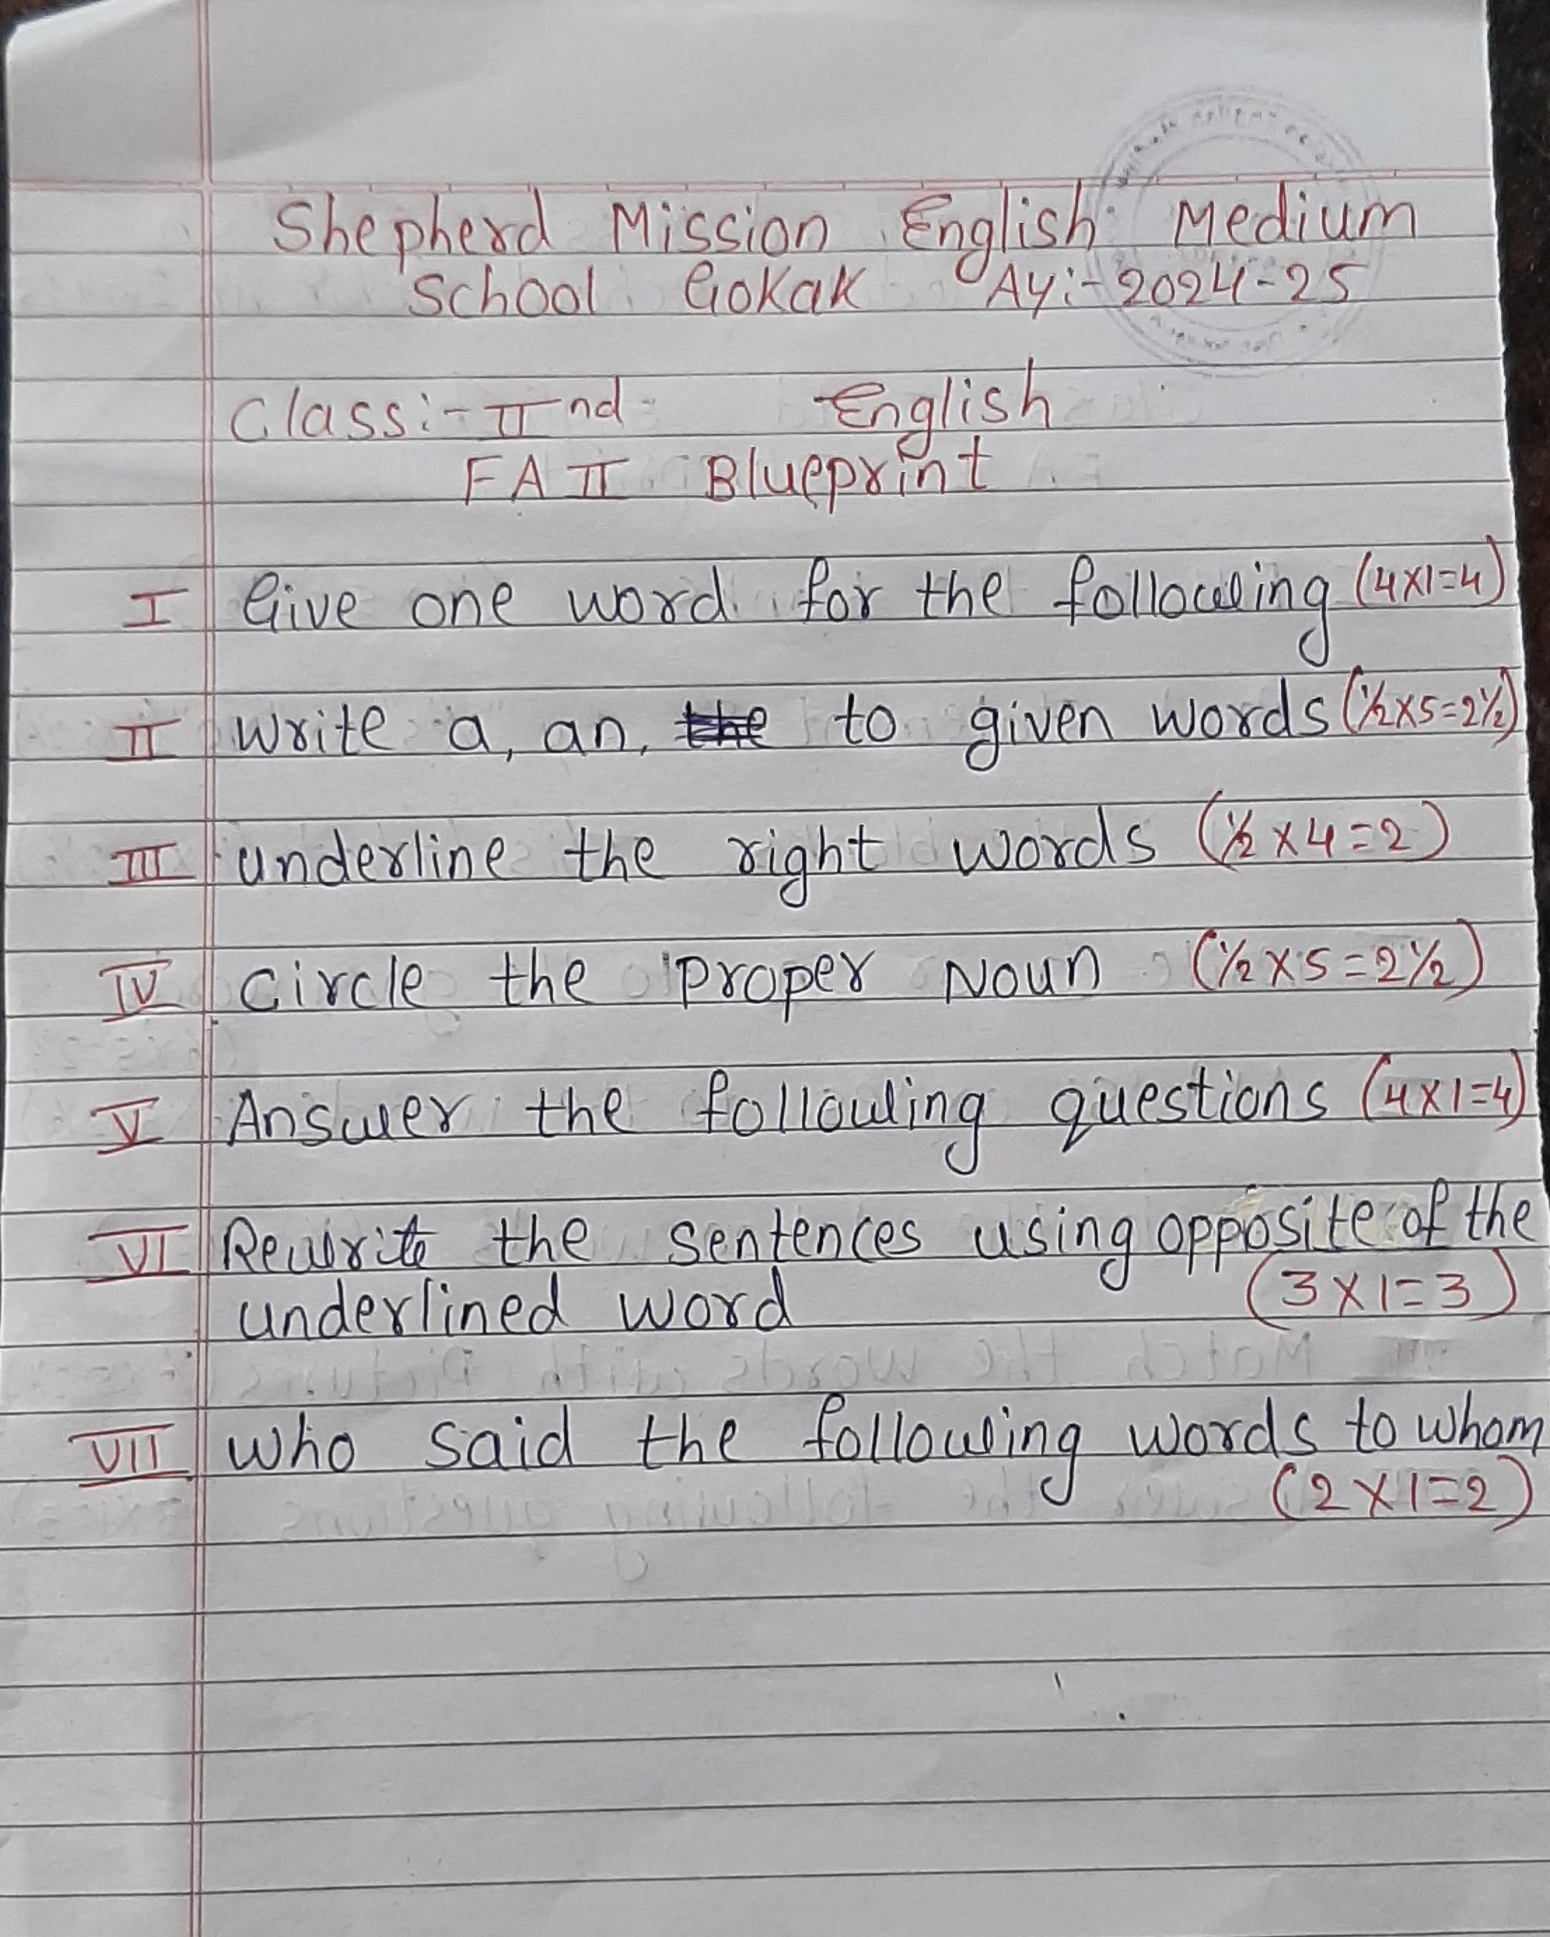 Shepherd Mission English Medium
School Gokak AY:- 2024-25
Class:- IInd English
FA II Blueprint
I Give one word for the following (4x1=4)
II Write a, an, the to given words (½x5=2½)
III underline the right words (½x4=2)
IV Circle the Proper Noun (½x5=2½)
V Answer the following questions (4x1=4)
VI Rewrite the sentences using opposite of the
underlined word (3x1=3)
VII Who said the following words to whom
(2x1=2)